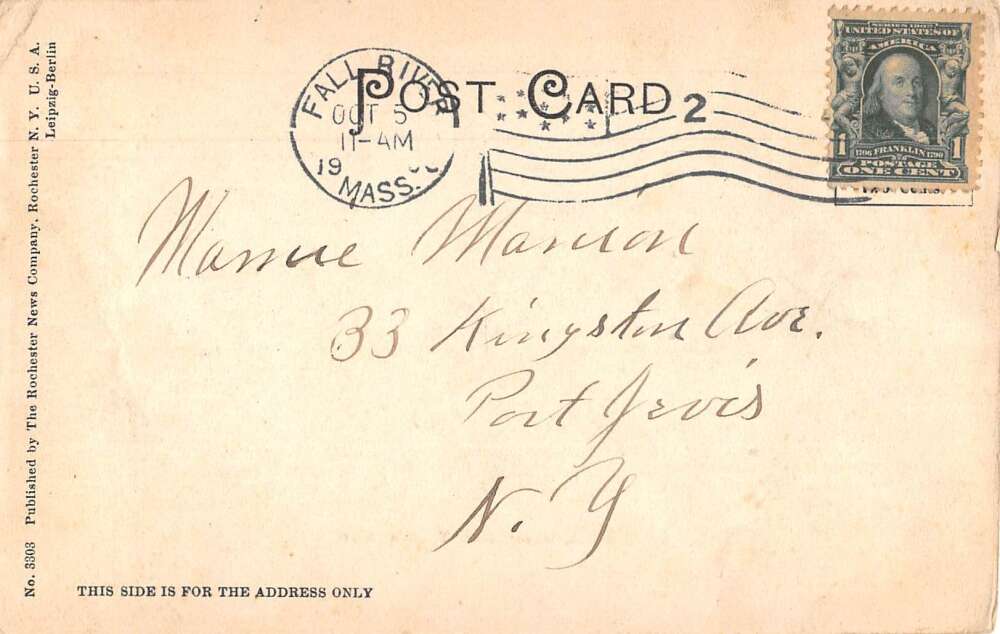 POST CARD
FALL RIVER
OCT 5
11-AM
19
MASS.
2
SERIES 1902
UNITED STATES OF
AMERICA
1 1706 FRANKLIN 1790 1
POSTAGE
ONE CENT
Mamie Manion
33 Kingston Ave.
Port Jervis
N.Y
THIS SIDE IS FOR THE ADDRESS ONLY
No. 3303 Published by The Rochester News Company, Rochester N. Y. U. S. A.
Leipzig-Berlin